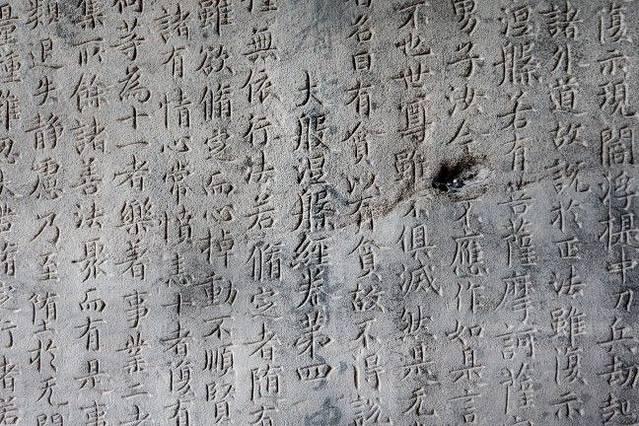 復示現閻浮提中刀兵劫起
諸外道故說於正法雖復示
涅槃若有菩薩摩訶薩
男子汝今不應作如是言
不也世尊雖不俱滅然是无
名曰有貪以有貪故不得說
大般涅槃經卷第四
無依行法若脩定者隨有
雖欲脩定而心掉動不順賢
諸有情心常憤恚十者復有
何等為十一者樂著事業二者
集所餘諸善法聚而有是事
類退失靜慮乃至墮於无間
定行者若